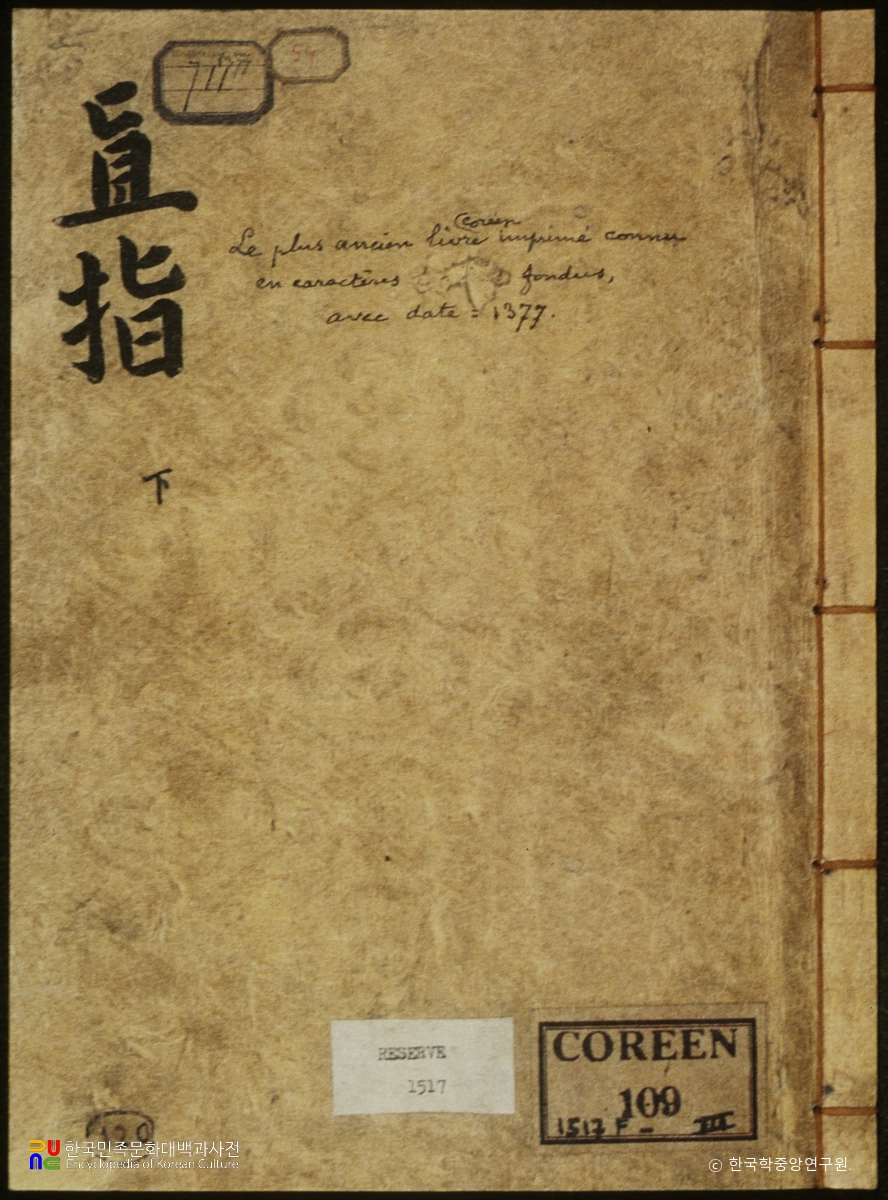 直指
下
Coreen
Le plus ancien livre imprimé connu
en caractères fondus,
avec date = 1377.
RESERVE
1517
COREEN
109
1517 F - III
한국민족문화대백과사전
Encyclopedia of Korean Culture
© 한국학중앙연구원